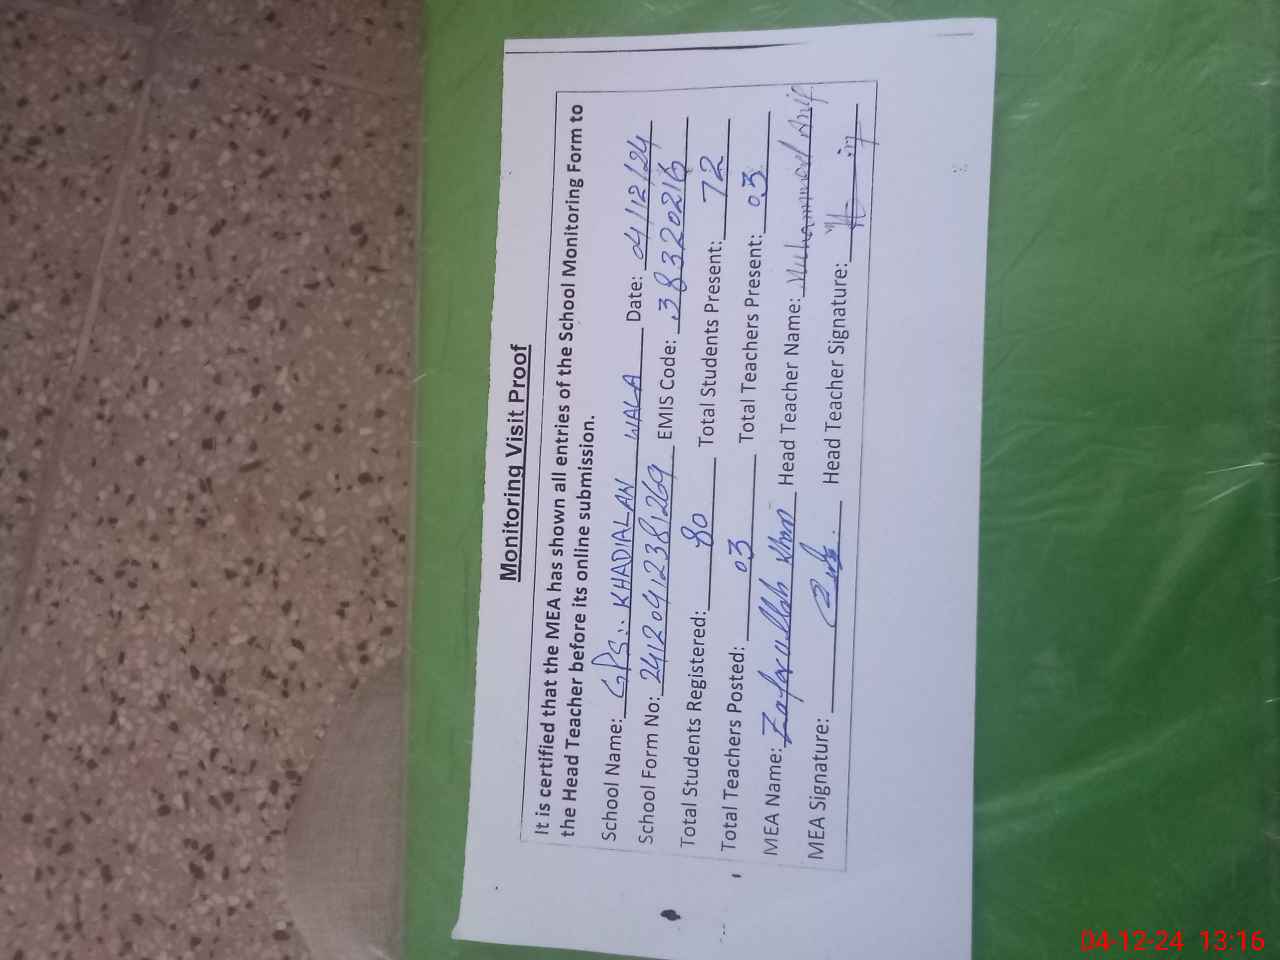 Monitoring Visit Proof
It is certified that the MEA has shown all entries of the School Monitoring Form to
the Head Teacher before its online submission.
School Name: GPS:. KHADIALAN WALA Date: 04/12/24
School Form No: 24120412381269 EMIS Code: 38320216
Total Students Registered: 80 Total Students Present: 72
Total Teachers Posted: 03 Total Teachers Present: 03
MEA Name: Zafarullah Khan Head Teacher Name: Muhammad Arif
MEA Signature: Head Teacher Signature:
04-12-24 13:16